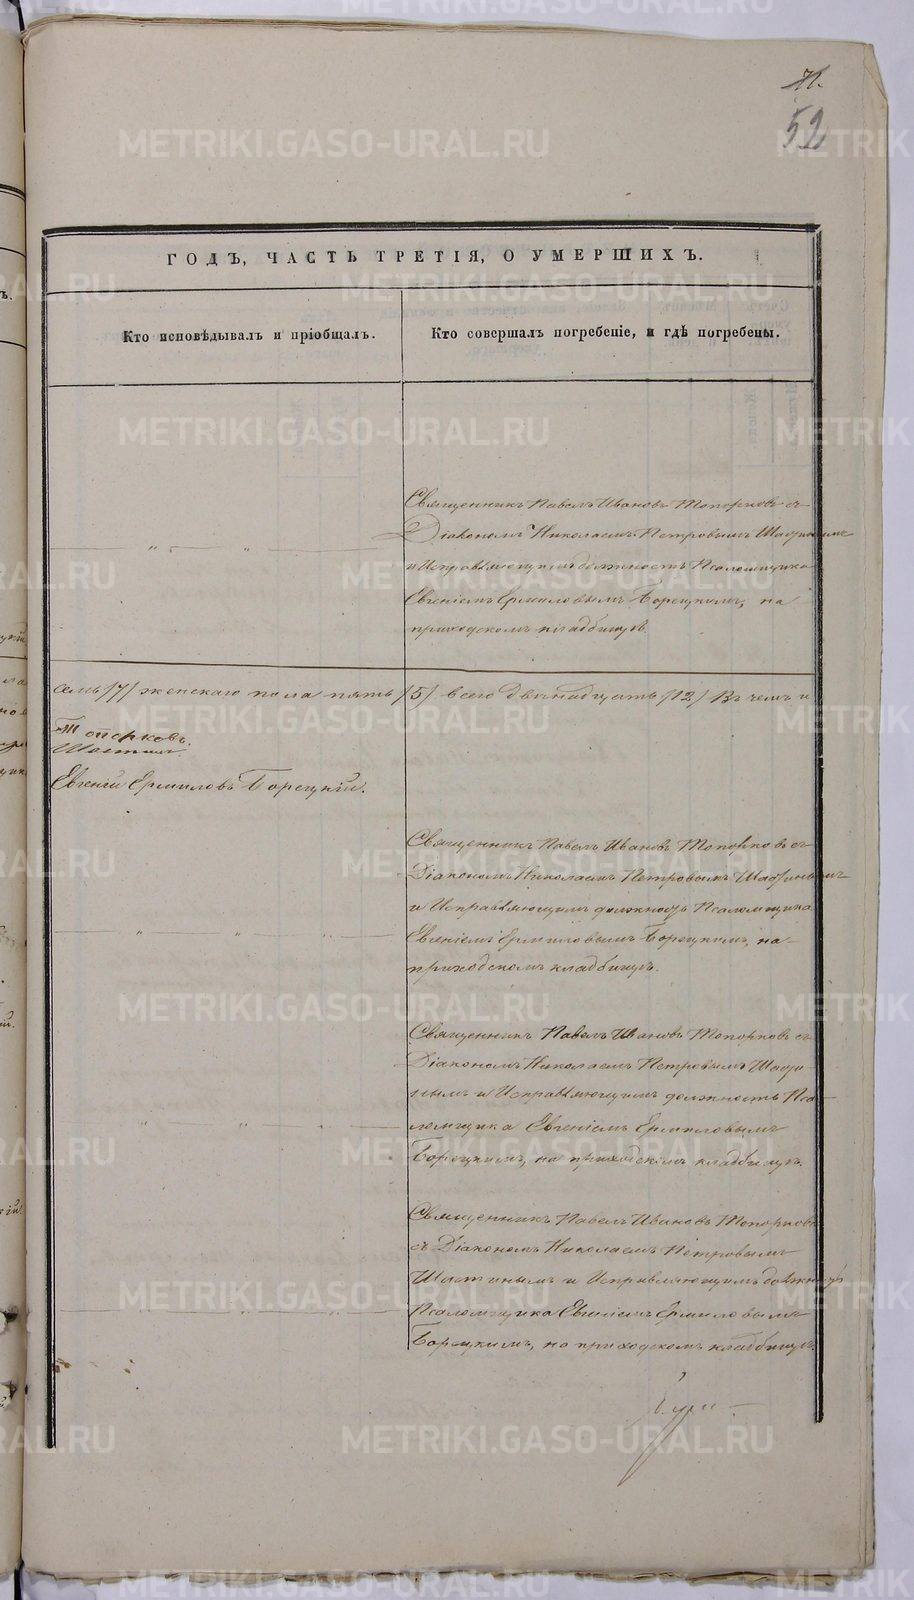 71.
52
ГОДЪ, ЧАСТЬ ТРЕТІЯ, О УМЕРШИХЪ.
Кто исповѣдывалъ и пріобщалъ.
Кто совершалъ погребеніе, и гдѣ погребены.
Священникъ Павелъ Ивановъ Топорковъ съ
Діакономъ Николаемъ Петровымъ
и Исправляющимъ должность Псаломщика
Евгеніемъ Ермиловымъ Борецкимъ, на
приходскомъ кладбищѣ.
семь /7/ женскаго пола пять /5/ всего двѣнадцать /12/ Въ чемъ и
Топорковъ.
Евгеній Ермиловъ Борецкій.
Священникъ Павелъ Ивановъ Топорковъ съ
Діакономъ Николаемъ Петровымъ
и Исправляющимъ должность Псаломщика
Евгеніемъ Ермиловымъ Борецкимъ, на
приходскомъ кладбищѣ.
Священникъ Павелъ Ивановъ Топорковъ съ
Діакономъ Николаемъ Петровымъ Шасти-
нымъ и Исправляющимъ должность Пса-
ломщика Евгеніемъ Ермиловымъ
Борецкимъ, на приходскомъ кладбищѣ.
Священникъ Павелъ Ивановъ Топорковъ
съ Діакономъ Николаемъ Петровымъ
Шастинымъ и Исправляющимъ должность
Псаломщика Евгеніемъ Ермиловымъ
Борецкимъ, на приходскомъ кладбищѣ.
METRIKI.GASO-URAL.RU